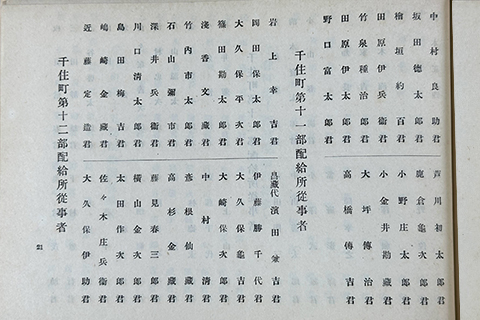 中村良助君
坂田徳太郎君
檜垣約百君
田原伊兵衞君
竹泉種治郎君
田原伊太郎君
野口富太郎君
芦川初太郎君
鹿倉龜次郎君
小野庄太郎君
小金井勘藏君
大坪傳治君
高橋傳吉君
千住町第十一部配給所從事者
岩上幸吉君
岡田保太郎君
大久保平次郎君
篠田勘太郎君
淺香文藏君
竹内市太郎君
石山彌市君
深井兵衞君
川口清太郎君
島田梅吉君
嶋崎金藏君
近藤定造君
濱田兼吉君
伊藤勝千代君
大久保龜吉君
大崎保次郎君
中村清君
彦根仙藏君
高杉金藏君
藤見春三郎君
横山金次郎君
太田作次郎君
佐々木庄兵衞君
大久保伊助君
千住町第十二部配給所從事者
21